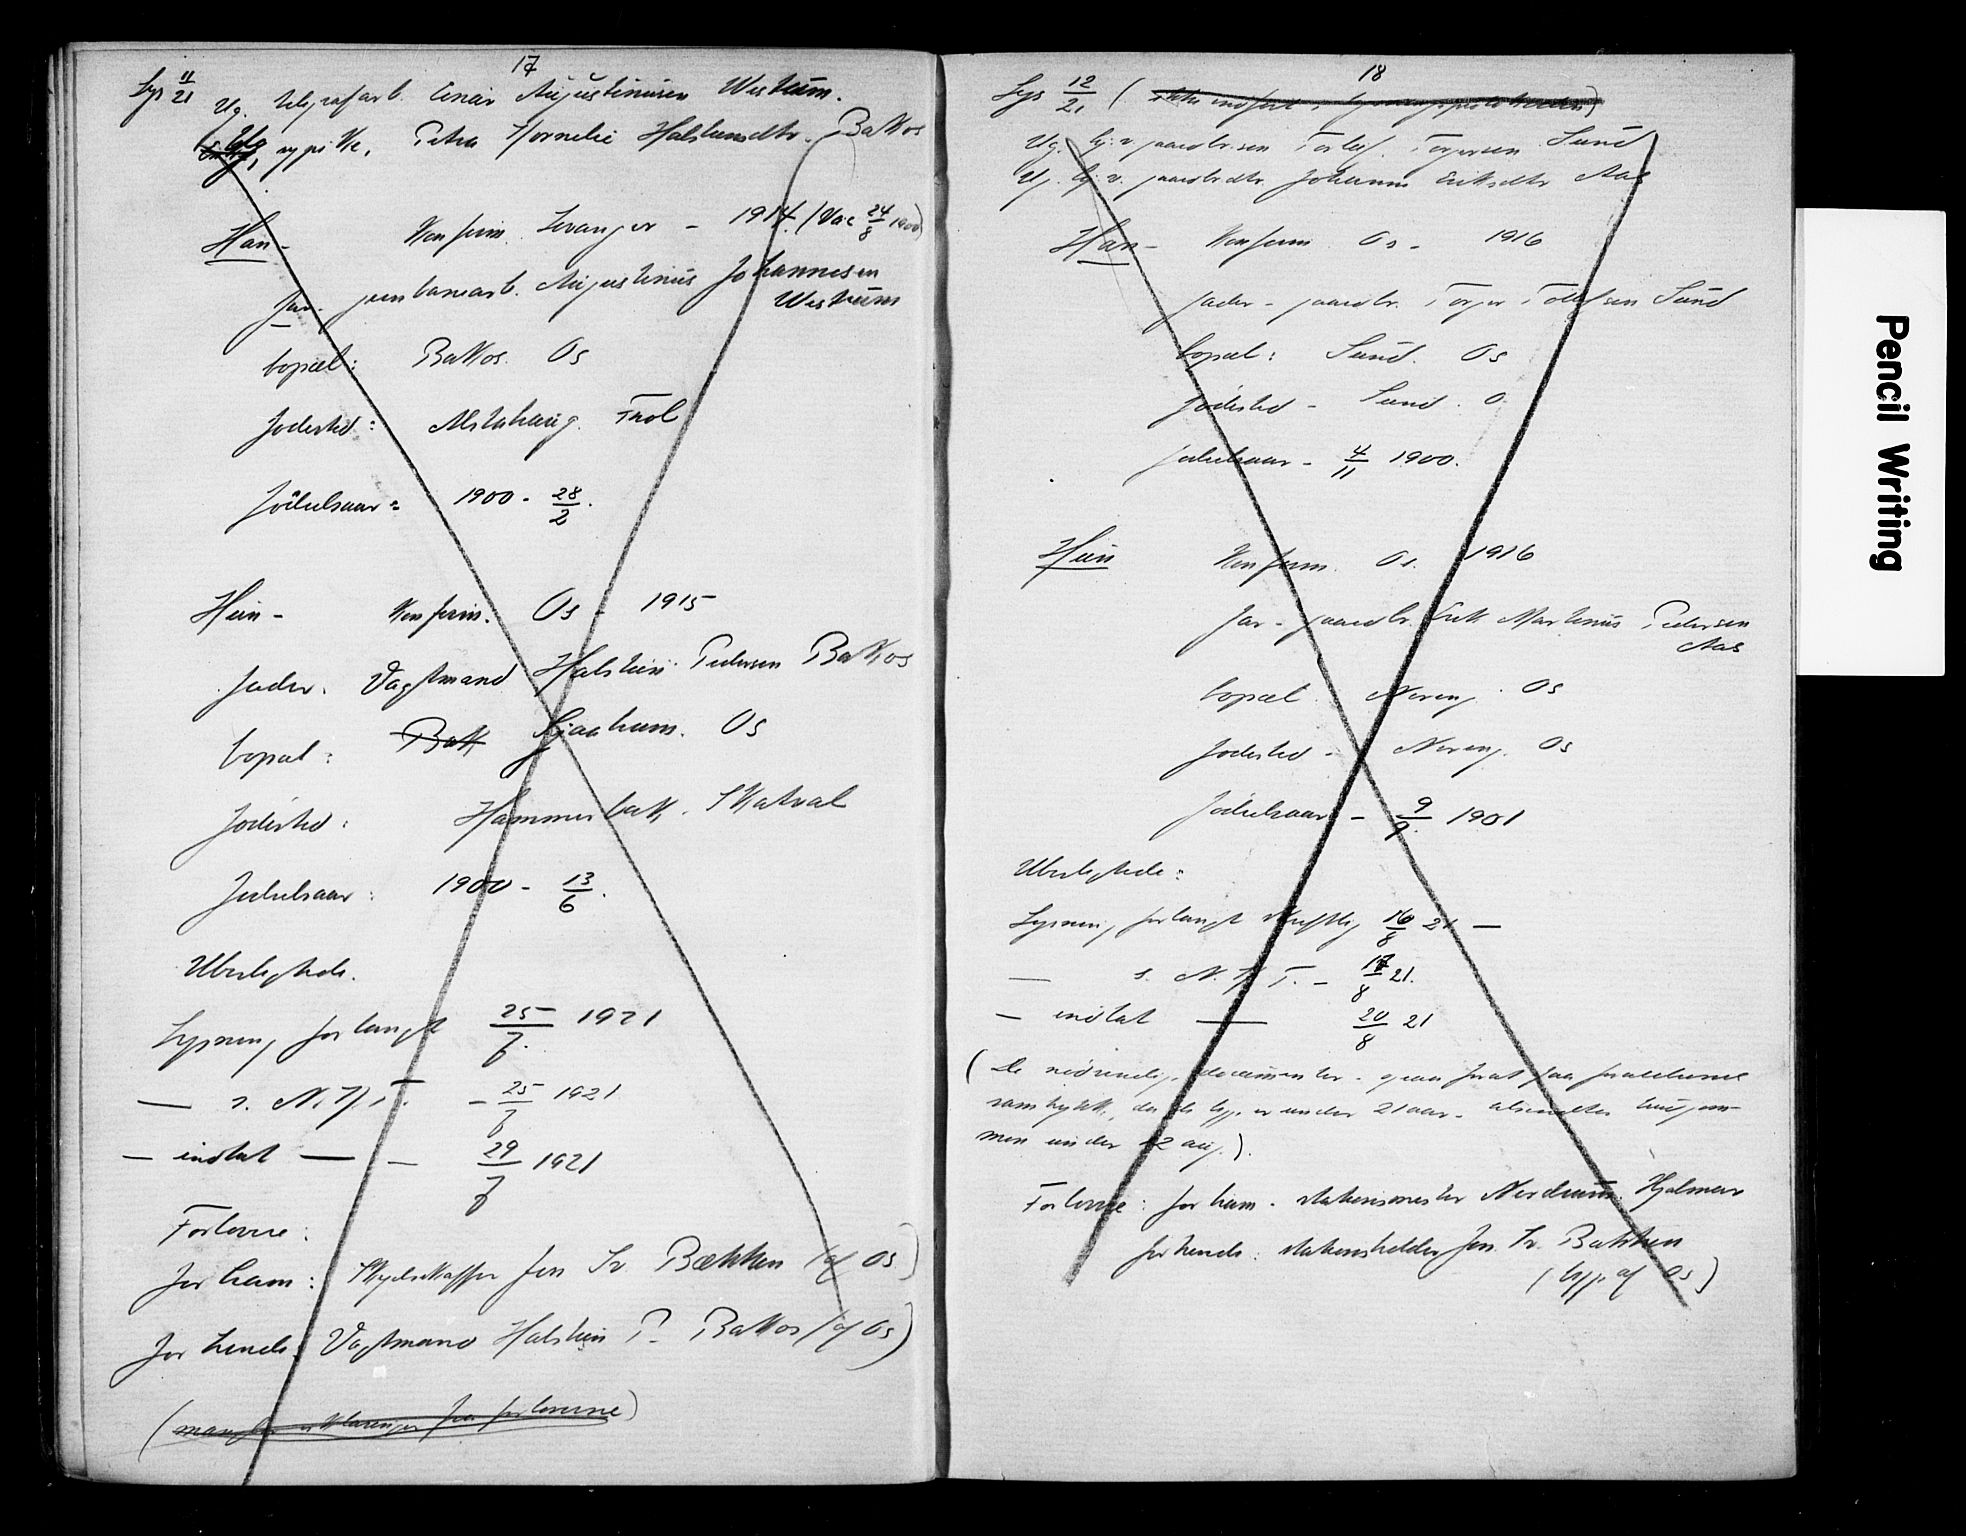 17
Lys 11/21 Ug. telegrafarb. Einar Augustinusen Westrum.
Ug. sypike, Petra Kornelie Halstensdtr. Bakkos
Han - Konfirm. Levanger - 1914. (Vac 24/8 1900)
Far. jernbanearb. Augustinus Johannesen
Westrum
bopæl: Bakkos. Os
fødested: Alstahaug. Frol
fødselsaar: 1900 - 28/2.
Hun - Konfirm. Os - 1915
fader. Vagtmand Halstein Pedersen Bakkos
bopæl: Bakk Os
fødested: Hammerbakk. Skatval
fødselsaar: 1900 - 13/6.
Ubeslegtede.
Lysning forlangt 25/7. 1921
— s. N. K. T. - 25/7 1921
— indtat — — 29/7 1921
Forlovere:
for ham: Skydsskaffer Jon Sr. Bækken (af Os)
for hende: Vagtmand Halstein P. Bakkos (af Os)
(mangler erklæringer fra forloverne)
18
Lys 12/21 (
Ug. gaardbr.søn Torleif Torgersen Sund
Ug. gaardbrdtr. Johanne Eriksdtr Aas
Han - Konfirm Os - 1916
fader - gaardbr. Torger Tollefsen Sund
bopæl: Sund. Os
fødested - Sund. O
fødselsaar - 4/11 1900.
Hun Konfirm. Os. 1916
far - gaardbr. Erik Martinus Pedersen
Aas
bopæl Nereng. Os
fødested - Nereng. Os
fødselsaar - 9/9. 1901
Ubeslegtede:
Lysning forlangt skriftlig 16/8 21 —
— s. N. K. T. - 17/8 21.
— indtat — 20/8 21
(De nødvendige documenter - forat faa forældrenes
samtykke, da de begge er under 21 aar -
men under 12 aug.).
Forlovere: for ham - stationsmester Nordrum. Hjalmar
for hende: stationsholder Jon Sr. Bækken
(begge af Os)
Pencil Writing